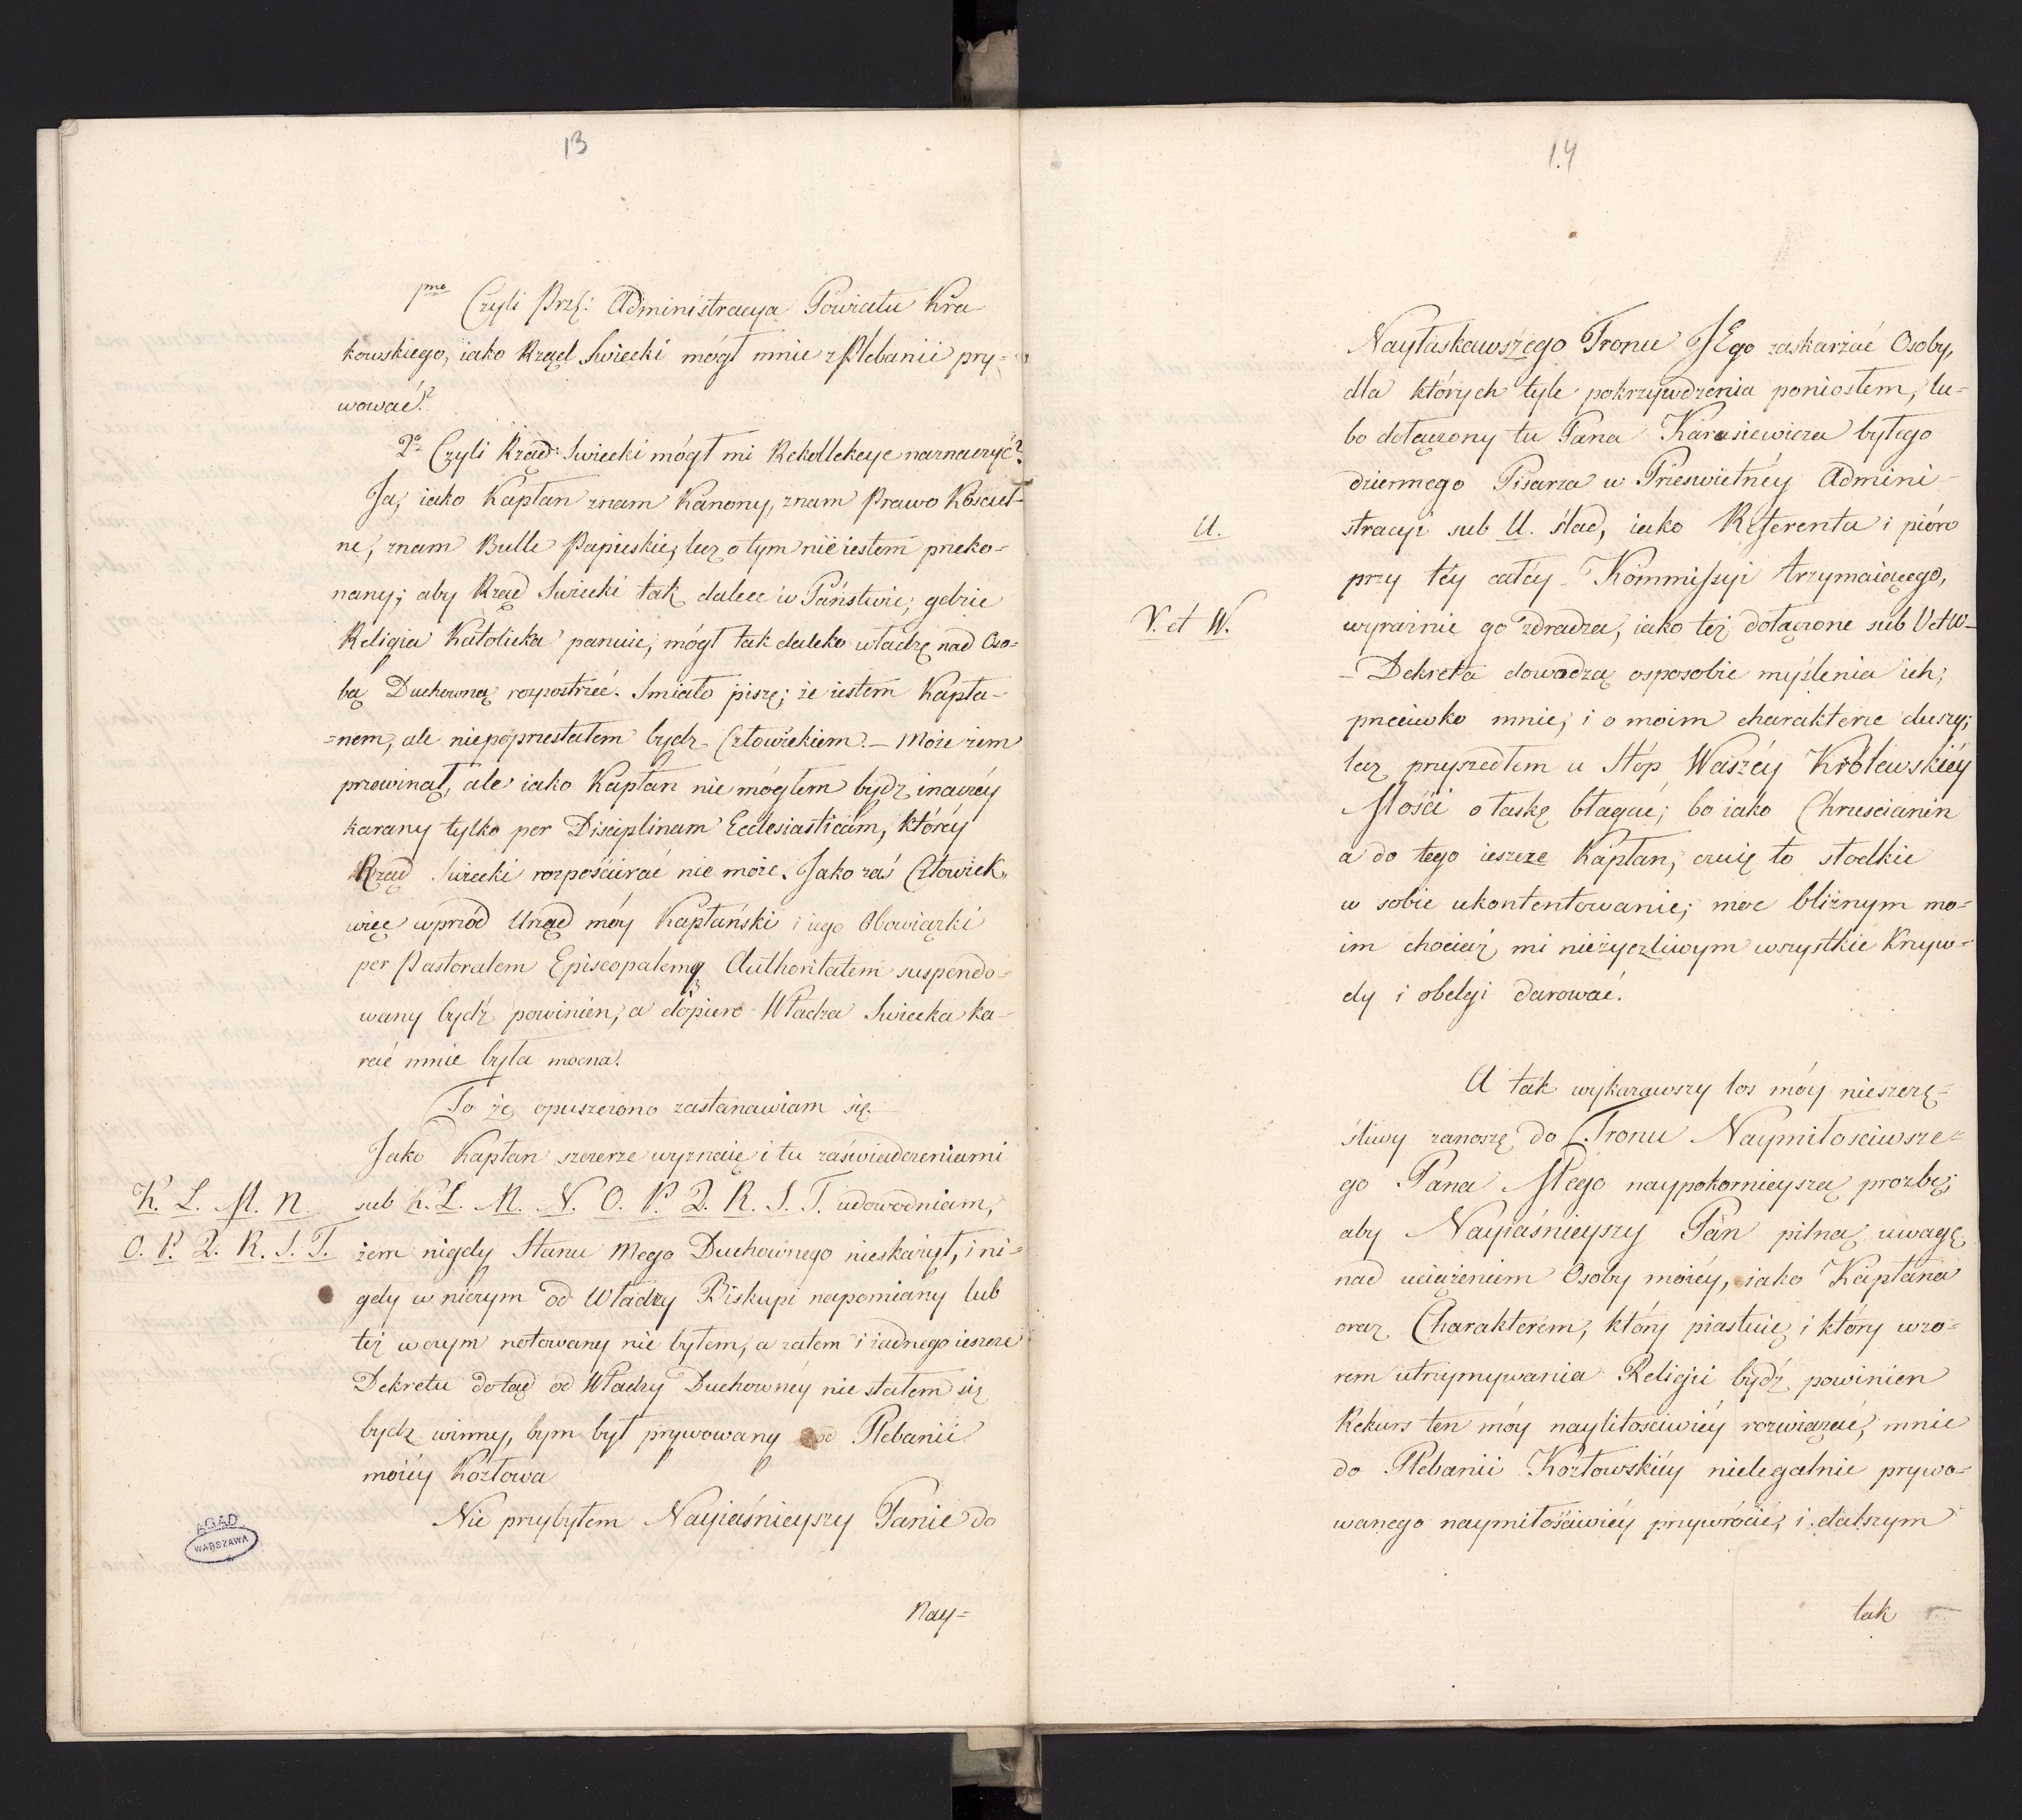 13
1mo Czyli Prz: Administracya Powiatu Kra
kowskiego, iako Rząd Swiecki mógł mnie z Plebanii pry=
wować?
2o Czyli Rząd Swiecki mógł mi Rekollekcye naznaczyć?
Ja, iako Kapłan znam Kanony, znam Prawo Kosciel=
ne, znam Bulle Papieskie, lecz o tym nie iestem przeko=
nany; aby Rząd Swiecki tak dalece w Państwie, gdzie
Religia Katolicka panuie, mógł tak daleko władzę nad Oso=
bą Duchowną rozpostrzeć. Smiało piszę; że iestem Kapła=
=nem, ale nieprzestałem bydz Człowiekiem. – Może żem
przewinął, ale iako Kapłan nie mógłem bydz inaczéy
karany tylko per Disciplinam Ecclesiasticam, któréy
Rząd Swiecki rozpościerać nie może. Jako zaś Człowiek,
więc wprzód Urząd móy Kapłański i iego Obowiązki
per Pastoralem Episcopalemq Authoritatem suspendo=
wany bydź powinien, a dopiero Władza Swiecka ka=
rać mnie była mocna.
To że opuszczono zastanawiam się.
Jako Kapłan szczerze wyznaię i tu zaświadczeniami
K. L. M. N. sub K. L. M. N. O. P. Q. R. S. T. udowodniam,
O. P. Q. R. S. T. żem nigdy Stanu Mego Duchownego nieskaził, i ni=
gdy w niczym od Władzy Biskupi napomiany lub
też w czym notowany nie byłem, a zatem i żadnego ieszcze
Dekretu dotąd od Władzy Duchownéy nie stałem się
bydz winny, bym był prywowany od Plebanii
moiéy Kozłowa
Nie przybyłem Nayiaśnieyszy Panie do
Nay=
AGAD
WARSZAWA
14
Nayłaskawszego Tronu JEgo zaskarżać Osoby,
dla których tyle pokrzywdzenia poniosłem, lu=
bo dołączony tu Pana Karasiewicza byłego
dziennego Pisarza w Prześwietnéy Admini=
U. stracyi sub U. ślad, iako Referenta i pióro
przy téy całéy Kommissyi trzymaiącego,
V. et W. wyraźnie go zdradza, iako też dołączone sub V et W=
– Dekreta dowodzą o sposobie myślenia ich,
przeciwko mnie, i o moim charakterze duszy;
lecz przyszedłem u Stóp Waszéy Królewskiéy
Mości o łaskę błagać; bo iako Chrześcianin
a do tego ieszcze Kapłan, czuię to słodkie
w sobie ukontentowanie; móc bliznym mo=
im chociaż mi nieżyczliwym wszystkie Krzyw=
dy i obelgi darować.
A tak wykazawszy los móy nieszczę=
śliwy zanoszę do Tronu Naymiłosciwsze=
go Pana Mego naypokornieyszą prozbę;
aby Nayiaśnieyszy Pan pilną uwagę
nad uciążeniem Osoby moiéy, iako Kapłana
oraz Charakterem, który piastuię i który wzo=
rem utrzymywania Religii bydź powinien
Rekurs ten móy naylitościwiéy rozwiązać, mnie
do Plebanii Kozłowskiéy nielegalnie prywo=
wanego naymiłościwiéy przywrócić, i dalszym
tak